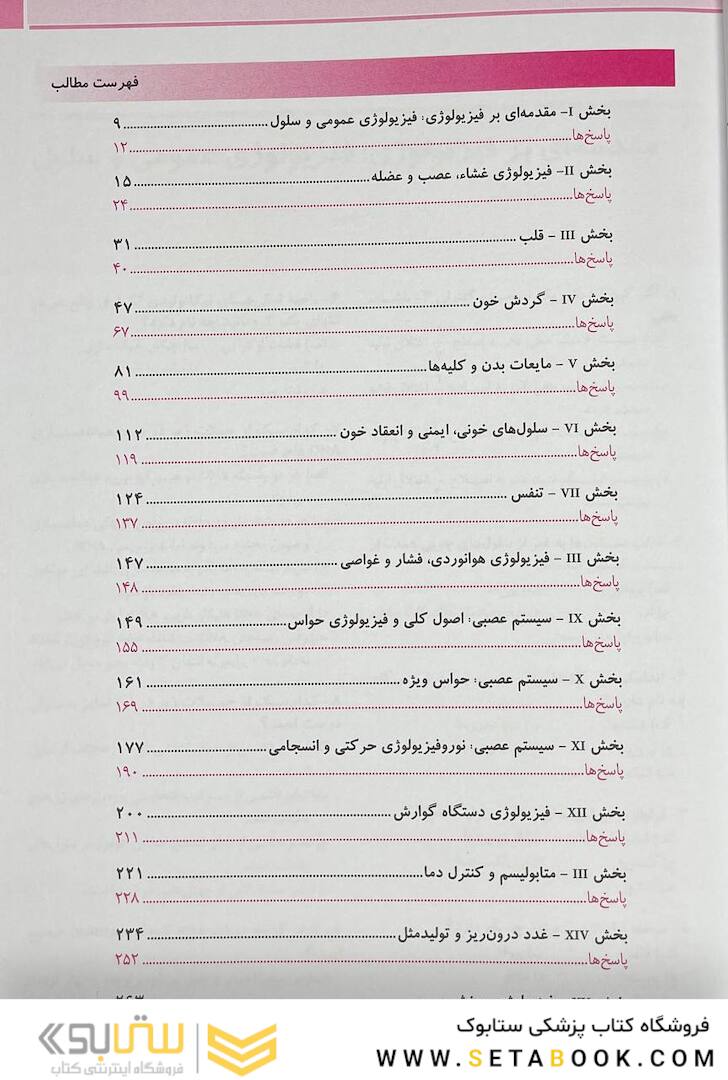 فهرست مطالب
بخش I- مقدمه‌ای بر فیزیولوژی؛ فیزیولوژی عمومی و سلول ........ ۹
پاسخ‌ها ........ ۱۲
بخش II- فیزیولوژی غشاء، عصب و عضله ........ ۱۵
پاسخ‌ها ........ ۲۴
بخش III - قلب ........ ۳۱
پاسخ‌ها ........ ۴۰
بخش IV - گردش خون ........ ۴۷
پاسخ‌ها ........ ۶۷
بخش V - مایعات بدن و کلیه‌ها ........ ۸۱
پاسخ‌ها ........ ۹۹
بخش VI - سلول‌های خونی، ایمنی و انعقاد خون ........ ۱۱۲
پاسخ‌ها ........ ۱۱۹
بخش VII - تنفس ........ ۱۲۴
پاسخ‌ها ........ ۱۳۷
بخش III - فیزیولوژی هوانوردی، فشار و غواصی ........ ۱۴۷
پاسخ‌ها ........ ۱۴۸
بخش IX - سیستم عصبی؛ اصول کلی و فیزیولوژی حواس ........ ۱۴۹
پاسخ‌ها ........ ۱۵۵
بخش X - سیستم عصبی؛ حواس ویژه ........ ۱۶۱
پاسخ‌ها ........ ۱۶۹
بخش XI - سیستم عصبی؛ نوروفیزیولوژی حرکتی و انسجامی ........ ۱۷۷
پاسخ‌ها ........ ۱۹۰
بخش XII - فیزیولوژی دستگاه گوارش ........ ۲۰۰
پاسخ‌ها ........ ۲۱۱
بخش III - متابولیسم و کنترل دما ........ ۲۲۱
پاسخ‌ها ........ ۲۲۸
بخش XIV - غدد درون‌ریز و تولیدمثل ........ ۲۳۴
پاسخ‌ها ........ ۲۵۲
فروشگاه کتاب پزشکی ستابوک
WWW.SETABOOK.COM
ستابوک
فروشگاه اینترنتی کتاب